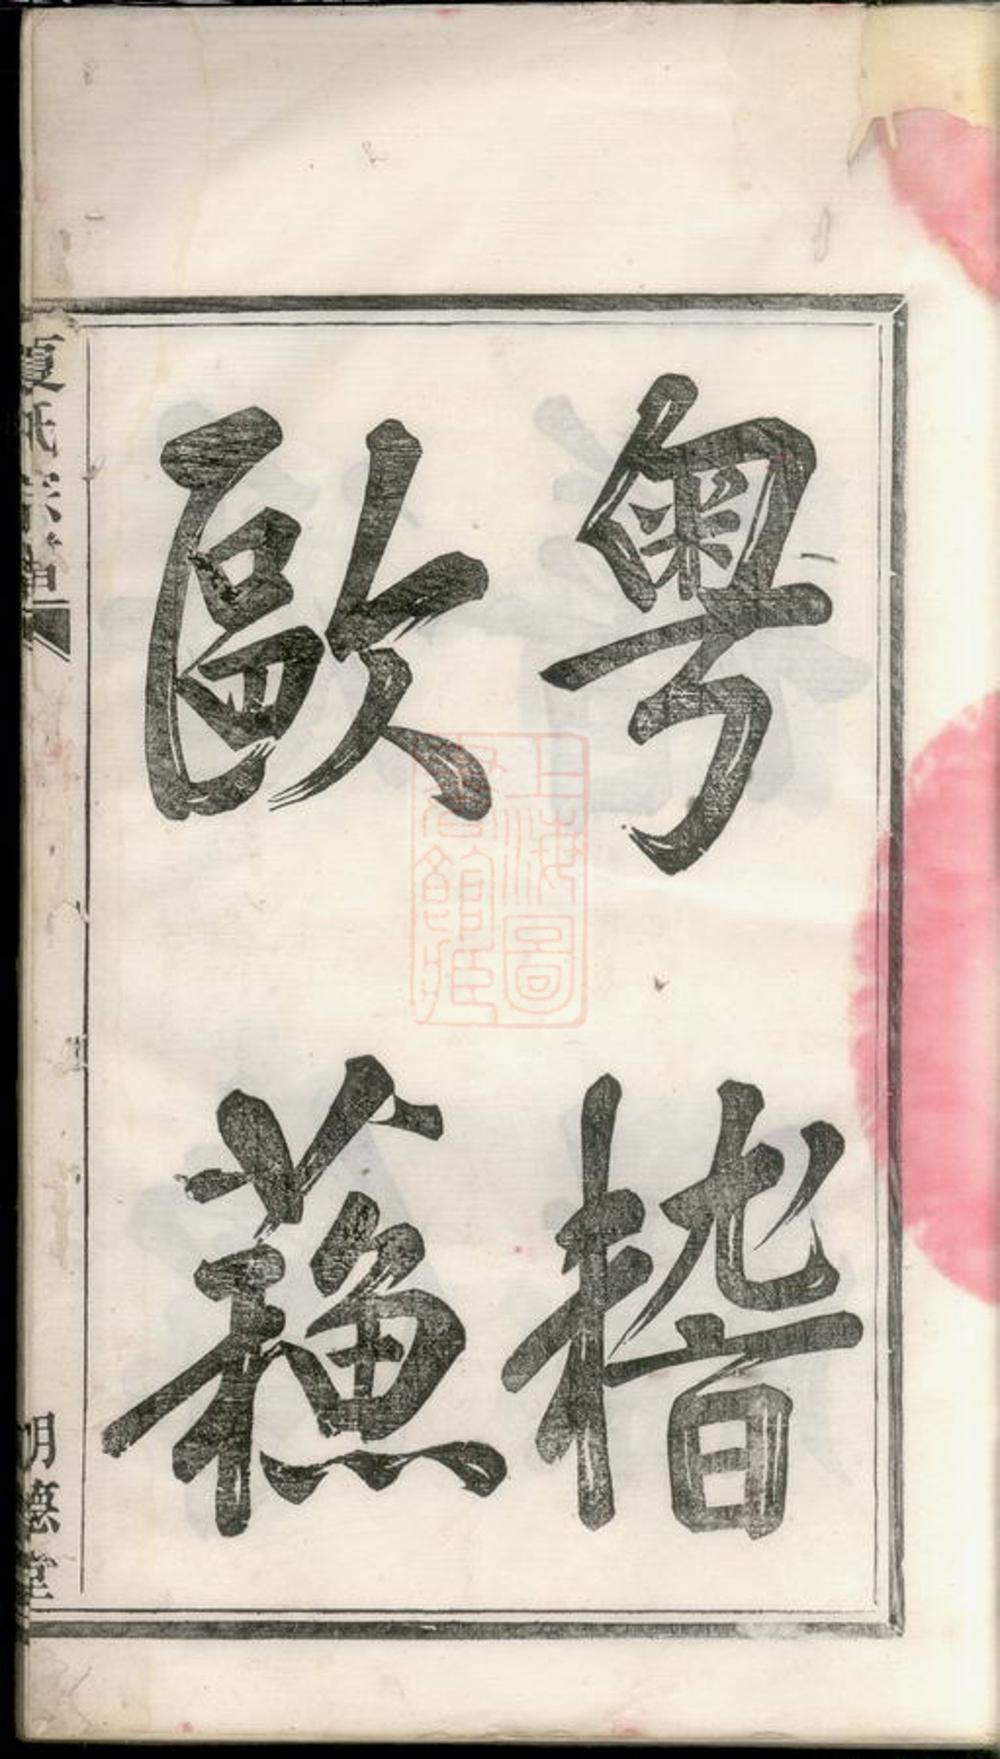 粤楷
歐蘓
夏氏宗譜
明德堂
上海圖
書館藏